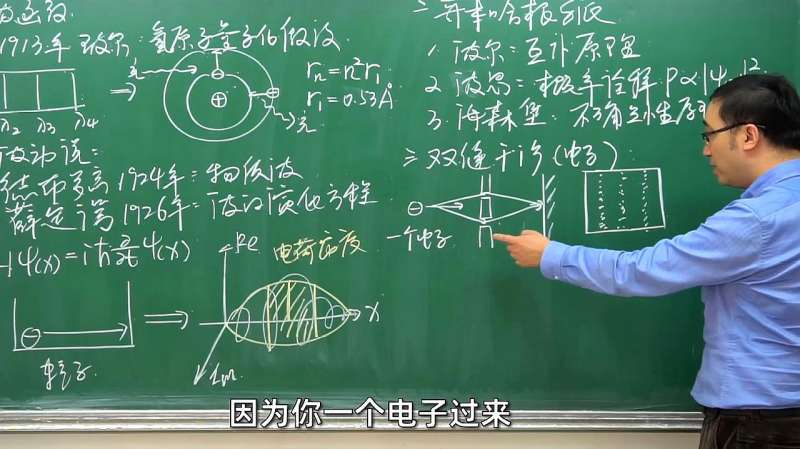 1913年 玻尔:氢原子量子化假设
λ2 λ3 λ4
rn=n²r1
r1=0.53Å
波动说:
德布罗意 1924年:物质波
薛定谔 1926年:波的演化方程
ψ(x)=iħ∂/∂t ψ(x)
Re
电荷密度
x
Im
电子
二、哥本哈根诠释
1. 波尔:互补原理
2. 波恩:概率诠释 P∝|ψ|²
3. 海森堡:不确定性原
三、双缝干涉(电子)
一个电子
因为你一个电子过来